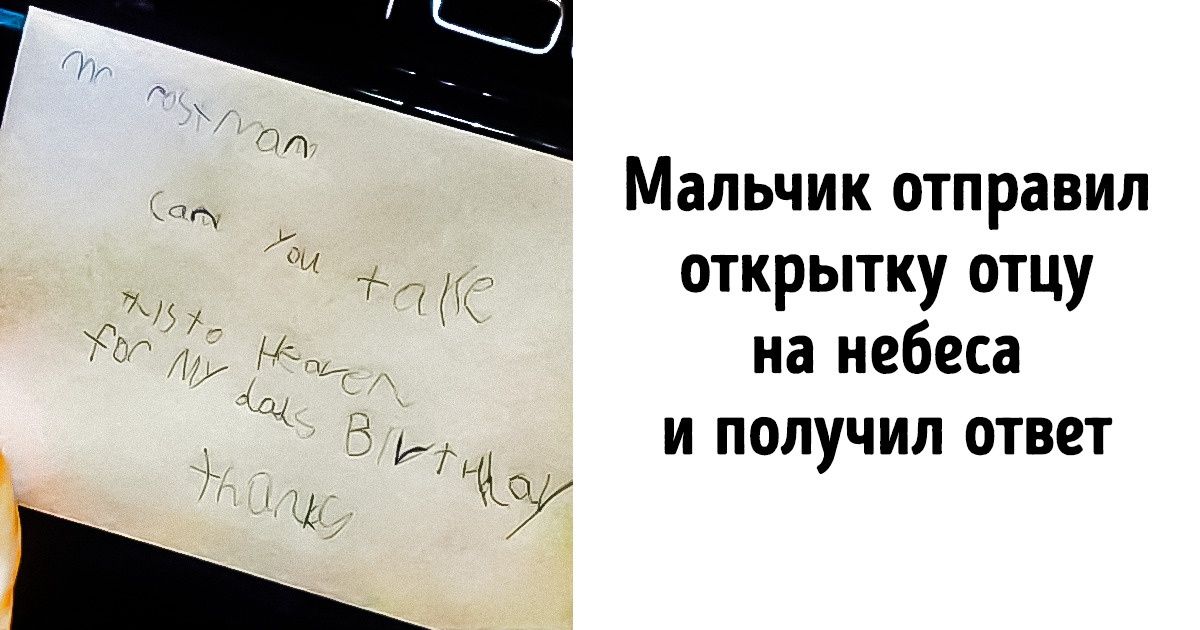 Mr Postman
Can you take
this to Heaven
for My dads Birthday
thanks
Мальчик отправил
открытку отцу
на небеса
и получил ответ